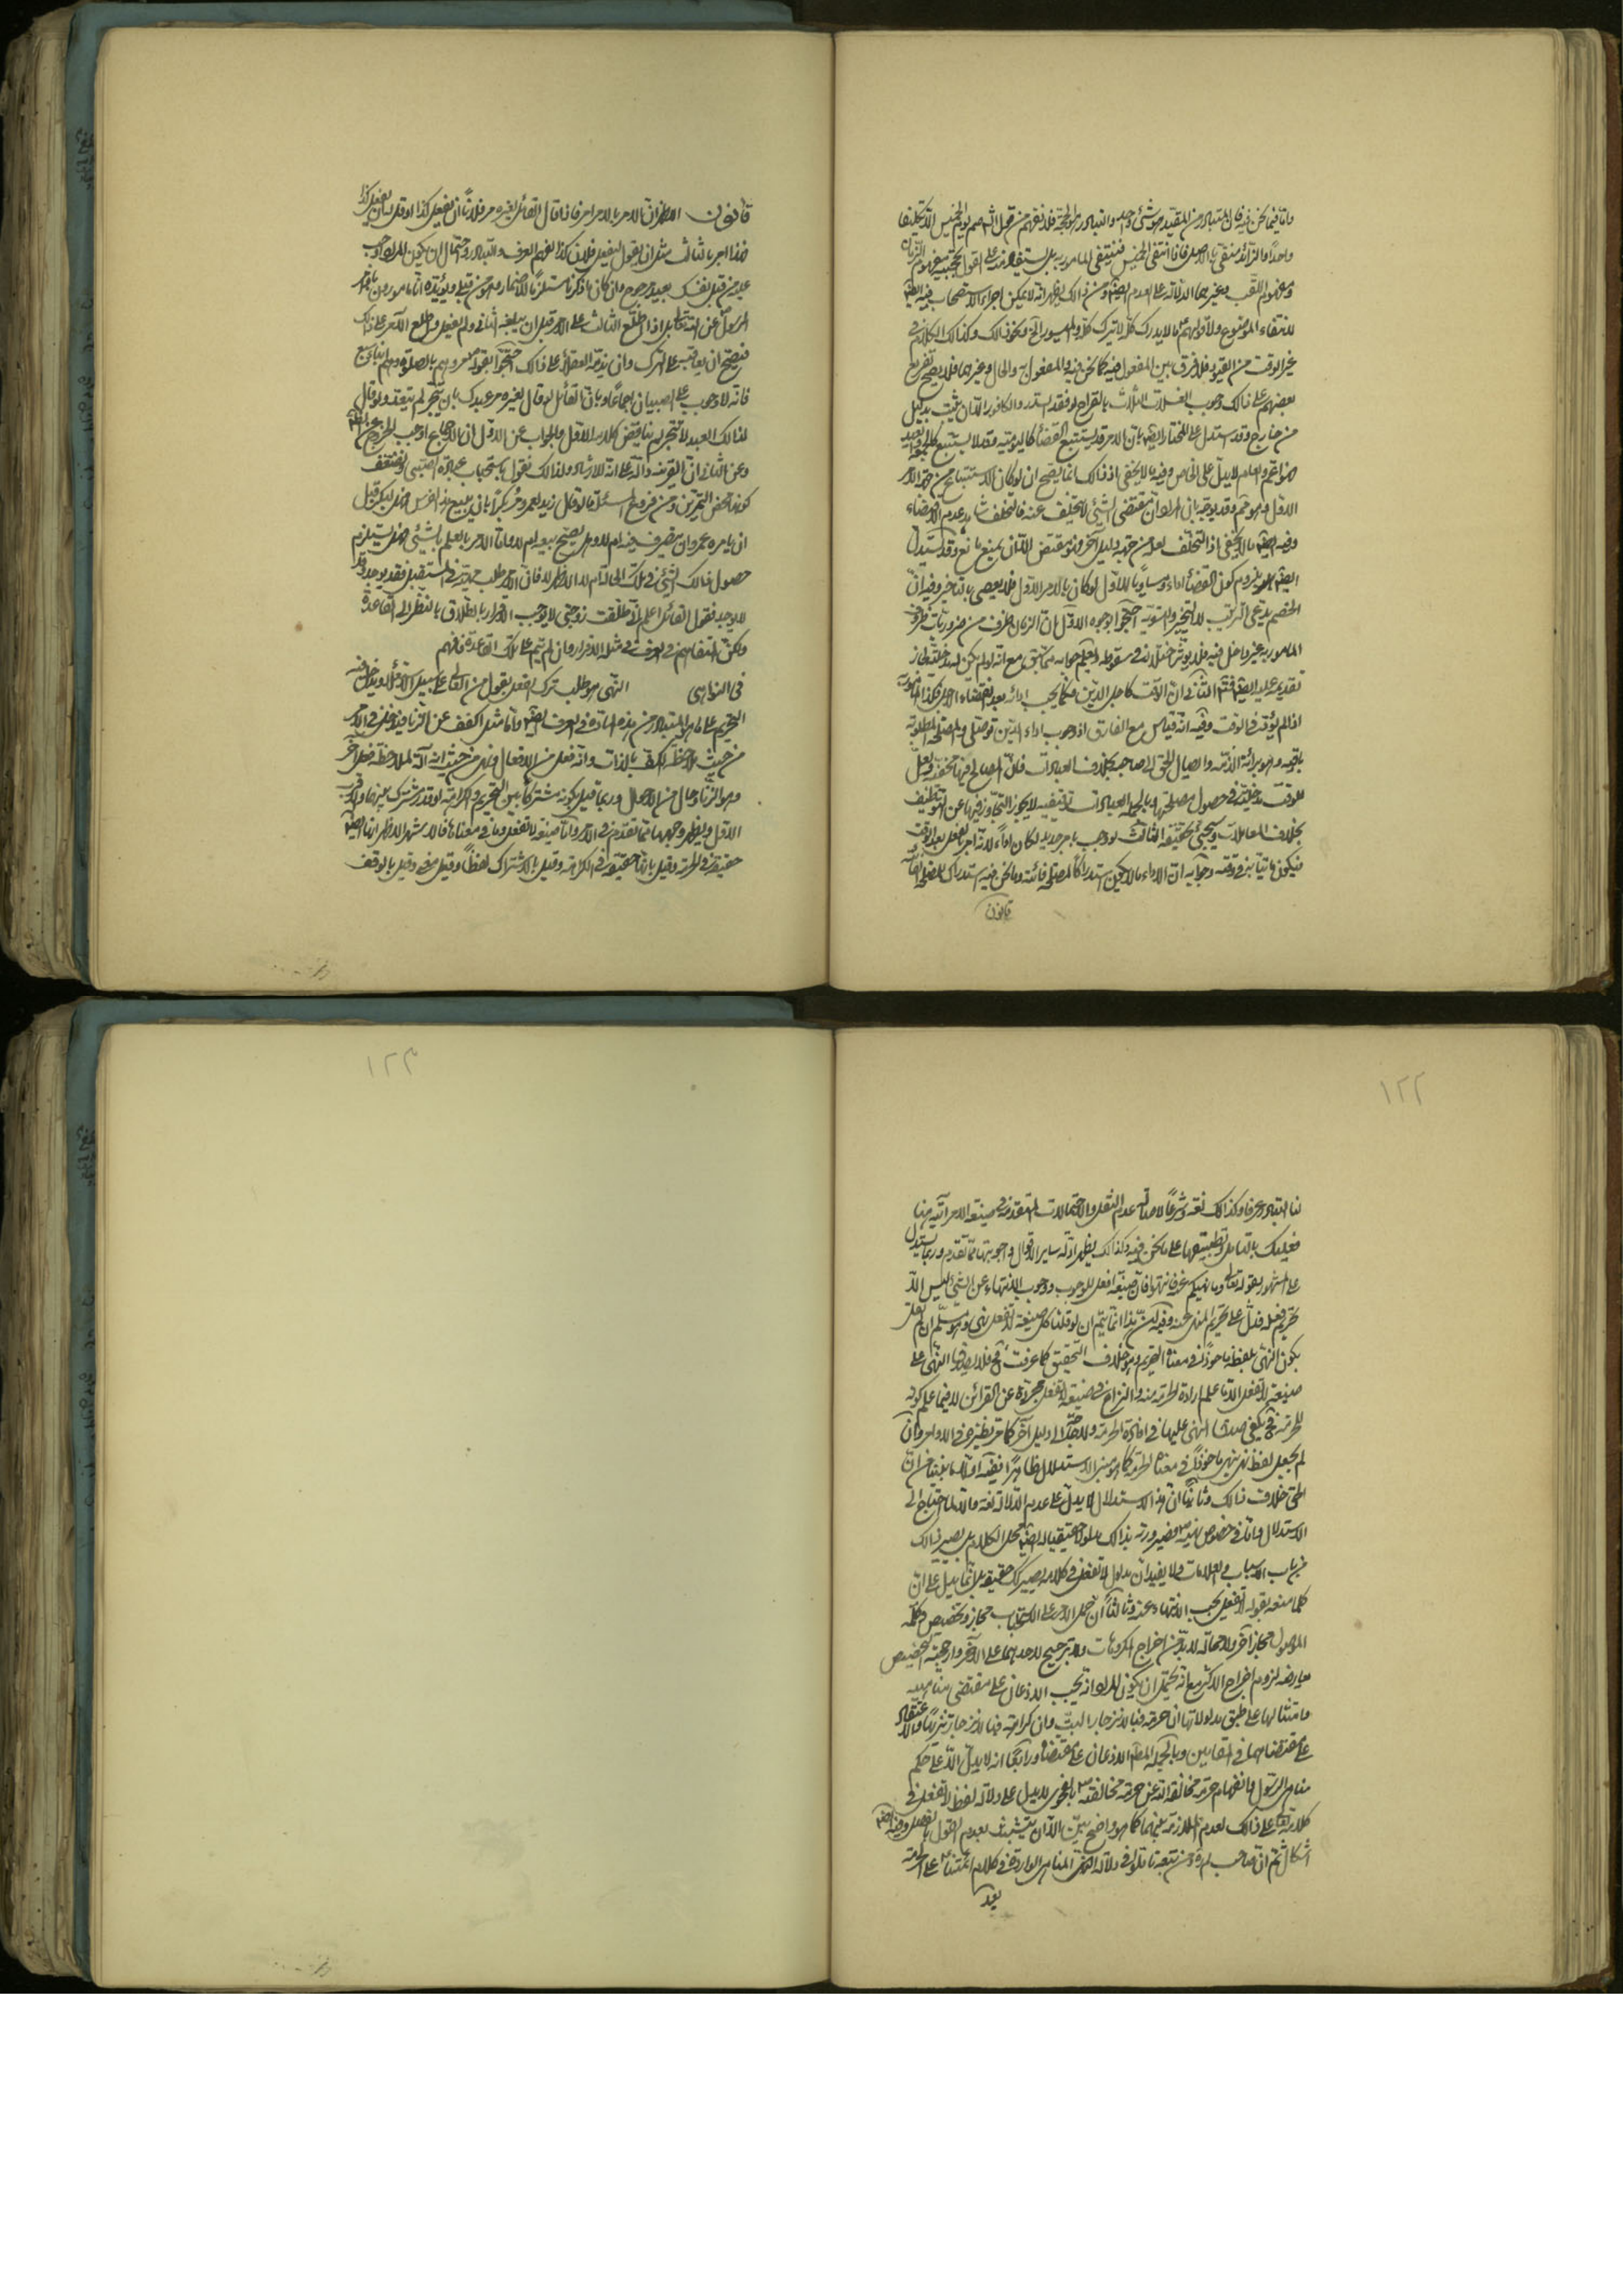 وامّا فيما نحن فيه فانّ المتبادر من المقيد هو شئ واحد والتبادر هو الحجّة فلا نفهم من قول الش صم يوم الخميس الّا تكليفا
واحداً والزّائد منفى بالاصل فاذا انتفى الخميس فينتفى المامور به بل يستفاد منه على القول بحجّية مفهوم الزّمان
ومفهوم اللقب وغيرهما الدلالة على العدم ايضا ومن ذلك يظهر انّه لا يمكن اجراء الاستصحاب فيه ايضا
لانتفاء الموضوع ولا قولهم ما لا يدرك كلّه لا يترك كلّه والميسور الخ ونحو ذلك وكذلك الكلام فى
غير الوقت من القيود فلا فرق بين المفعول فيه كما نحن فيه والمفعول به والحال وغيرهما فلا يصحّ تفريع
بعضهم على ذلك وجوب الغسلات الثلاث بالقراح لو فقد السدر والكافور الّا ان يثبت بدليل
من خارج وقد يستدل على المختار ايضا بانّ الامر قد يستتبع القضاء كاليومية وقد لا يستتبع كالجمعة والعيد
فهو اعم والعام لا يدلّ على الخاص وفيه ما لا يخفى اذ ذلك انما يصحّ ان لو كان الاستتباع من جهة الامر
الاول وهو ممّ وقد يوجّه بانّ المراد انّ مقتضى الشئ لا يتخلّف عنه فالتخلف شاهد عدم الاقتضاء
وفيه ايضا ما لا يخفى اذ التخلّف لعله من جهة دليل آخر ونحن نقتضى الّا ان يمنع مانع وقد يستدل
ايضا بلزوم كون القضاء اداء ومساوياً للاوّل لو كان بالامر الاوّل فلا يعصى بالتاخير وفيه انّ
الخصم يدعى الترتيب لا التخيير والتسوية احتجّوا بوجوه الاوّل انّ الزمان ظرف من ضروريات ظرف
المامور به غير داخل فيه فلا يؤثر اختلاله فى سقوطه ويعلم جوابه ممّا سبق مع انّه لو لم يكن له مدخلية لجاز
تقديمه عليه ايضا فتم الثّانى انّ الوقت كاجل الدين فكما يجب اداؤه بعد انقضاء الاجل فكذا المامور به
اذا لم يؤت فى الوقت وفيه انّه قياس مع الفارق اذ وجوب اداء الدين توصّلى والمصلحة المطلوبة
باقية وهو برائة الذّمة وايصال الحقّ الى صاحبه بخلاف العبادات فانّ المصالح فيها مخفية ولعلّ
للوقت مدخلية فى حصول مصلحتها وبالجملة العبادات توقيفية لا يجوز التجاوز فيها عن التوظيف
بخلاف المعاملات وسيجئ تحقيقه الثالث لو وجب بامر جديد لكان اداءً لانّه امر بالفعل بعد الوقت
فيكون ماتيا به فى وقته وجوابه انّ الاداء ما لا يكون استدراكاً لمصلحة فائتة وما نحن فيه استدراك للمصلحة الفائتة
قانون
قانون المظهر انّ الامر بالامر امر فاذا قال القائل لغيره مر فلاناً ان يفعل كذا او قل له ان يفعل كذا
فهذا امر بالثالث مثل ان يقول ليفعل فلان كذا لفهم العرف والتبادر واحتمال ان يكون المراد اوجب
عليه من قبل نفسك بعيد مرجوح وان كان ما ذكرنا مستلزماً للاضمار وهو من قبلى ويؤيّده انّا مامورون باوامر
الرسول عن الله تعالى بل اذا اطّلع الثالث على الامر قبل ان يبلّغه الثانى ولم يفعل واطلع الآمر على ذلك
فيصحّ ان يعاقبه على الترك وان يذمّه العقلاء على ذلك احتجّوا بقوله مروهم بالصلوة وهم ابناء سبع
فانّه لا وجوب على الصبيان اجماعاً وبانّ القائل لو قال لغيره مر عبدك بان يتّجر لم يتعدّ ولو قال
لذلك العبد لا تتّجر لم يناقض كلامه الاول والجواب عن الاوّل انّ الاجماع اوجب الخروج عن الظاهر
وعن الثانى انّ القرينة دالّة على انّه للارشاد ولذلك نقول باستحباب عبادة الصبى ونضعّف
كونها لمحض التمرين ومن فروع المسئلة ما لو قال زيد لعمرو مر بكراً بان يبيع هذا الفرس فهل لبكر قبل
ان يامره عمرو ان يتصرف فيه ام لا وهل يصحّ بيعه ام لا وامّا الامر بالعلم بالشئ فهل يستلزم
حصول ذلك الشئ فى تلك الحالة ام لا الاظهر لا فانّ الامر طلب ماهيّة فى المستقبل فقد يوجد وقد
لا يوجد فقول القائل اعلم انّى طلّقت زوجتى لا يوجب الاقرار بالطلاق بالنظر الى القاعدة
ولكن المتفاهم فى العرف فى مثله الاقرار وان لم يتم على تلك القاعدة فافهم
فى النواهى النّهى هو طلب ترك الفعل بقول من العالى على سبيل الاستعلاء ويدخل فيه
التحريم على ما هو المتبادر من هذه المادّة فى العرف ايضا وامّا مثل اكفف عن الزنا فيدخل فى الامر
من حيث ملاحظة الكفّ بالذات وانّه فعل من الافعال ونهى من حيث انّه آلة لملاحظة فعل آخر
وهو الزنا وحال من الاحوال وربما قيل بكونه مشتركا بين التحريم والكراهة او قدر مشترك بينهما والاقرب
الاوّل ويظهر وجههما ممّا تقدّم فى الامر وامّا صيغة لا تفعل وما فى معناها فالاشهر الاظهر انّها ايضا
حقيقة فى الحرمة وقيل بانّها حقيقة فى الكراهة وقيل بالاشتراك لفظاً وقيل معنى وقيل بالوقف
١٢٢
لنا التبادر عرفا وكذلك لغة وشرعاً لاصالة عدم النقل والاحتمالات المتقدّمة فى صيغة الامر آتية هنا
فعليك بالتامل وتطبيقها على ما نحن فيه وكذلك يظهر ادلة ساير الاقوال واجوبتها ممّا تقدّم وربما يستدلّ
على المشهور بقوله تعالى وما نهيكم عنه فانتهوا فانّ صيغة افعل للوجوب ووجوب الانتهاء عن الشئ ليس الّا
تحريم فعله فدلّ على تحريم المنهى عنه وفيه انّ هذا انّما يتم ان لو قلنا كل صيغة لا تفعل نهى وهو مسلّم ان لم نقل
بكون النهى بلفظه ماخوذاً فى معناه التحريم وهو خلاف التحقيق كما عرفت فح فلا يصدق النهى على
صيغة لا تفعل الّا ما علم ارادة الحرمة منه والنزاع فى صيغة لا تفعل مجردة عن القرائن لا فيما علم كونه
للحرمة فح يكفى صدق النهى عليها فى افادة الحرمة ولا حاجة الى دليل آخر كما مر نظيره فى الاوامر وان
لم يجعل لفظ نهى ينهى ماخوذاً فى معناه الحرمة كما هو مبنى الاستدلال ظاهراً ففيه اوّلا ما بيّنا من انّ
الحق خلاف ذلك وثانياً انّ هذا الاستدلال لا يدلّ على عدم الدلالة لغة والّا لما احتاج الى
الاستدلال وامّا فى خصوص نهيه ص فصيرورته بذلك مدلولا حقيقيا له ايضا محل الكلام بل يصير ذلك
من باب الاسباب والعلامات ولا يفيد انّ مدلول لا تفعل فى كلامه يصير كك حقيقة بل انّما يدل على انّ
كلّما منعه بقوله لا تفعل يجب الانتهاء عنه وثالثاً انّ حمل الامر على الاستحباب مجاز وتخصيص كلمة
الموصول مجاز آخر ولا محالة لا بدّ من اخراج المكروهات ولا ترجيح لاحدهما على الآخر وارجحيّة التخصيص
معارضة بلزوم اخراج الاكثر مع انّه يحتمل ان يكون المراد انّه يجب الاذعان على مقتضى مناهيه
وامتثالها على طبق مدلولاتها ان حرمة فبالانزجار البتّ وان كراهة فبالانزجار تنزيهاً والاعتقاد
على مقتضاهما فى المقامين وبالجملة المطلوب الاذعان على مقتضاه ورابعاً انّه لا يدلّ الّا على حكم
مناهى الرسول وانفهام حرمة مخالفة الله عن حرمة مخالفته ص بالفحوى لا يدل على دلالة لفظ لا تفعل فى
كلامه تعالى على ذلك لعدم الملازمة بينهما كما هو واضح بيّن الّا ان يتشبث بعدم القول بالفصل وفيه ايضا
اشكال ثم انّ صاحب لم ره ومن تبعه تاملوا فى دلالة المناهى الواردة فى كلام ائمّتنا ع على الحرمة
بعد
١٢٣